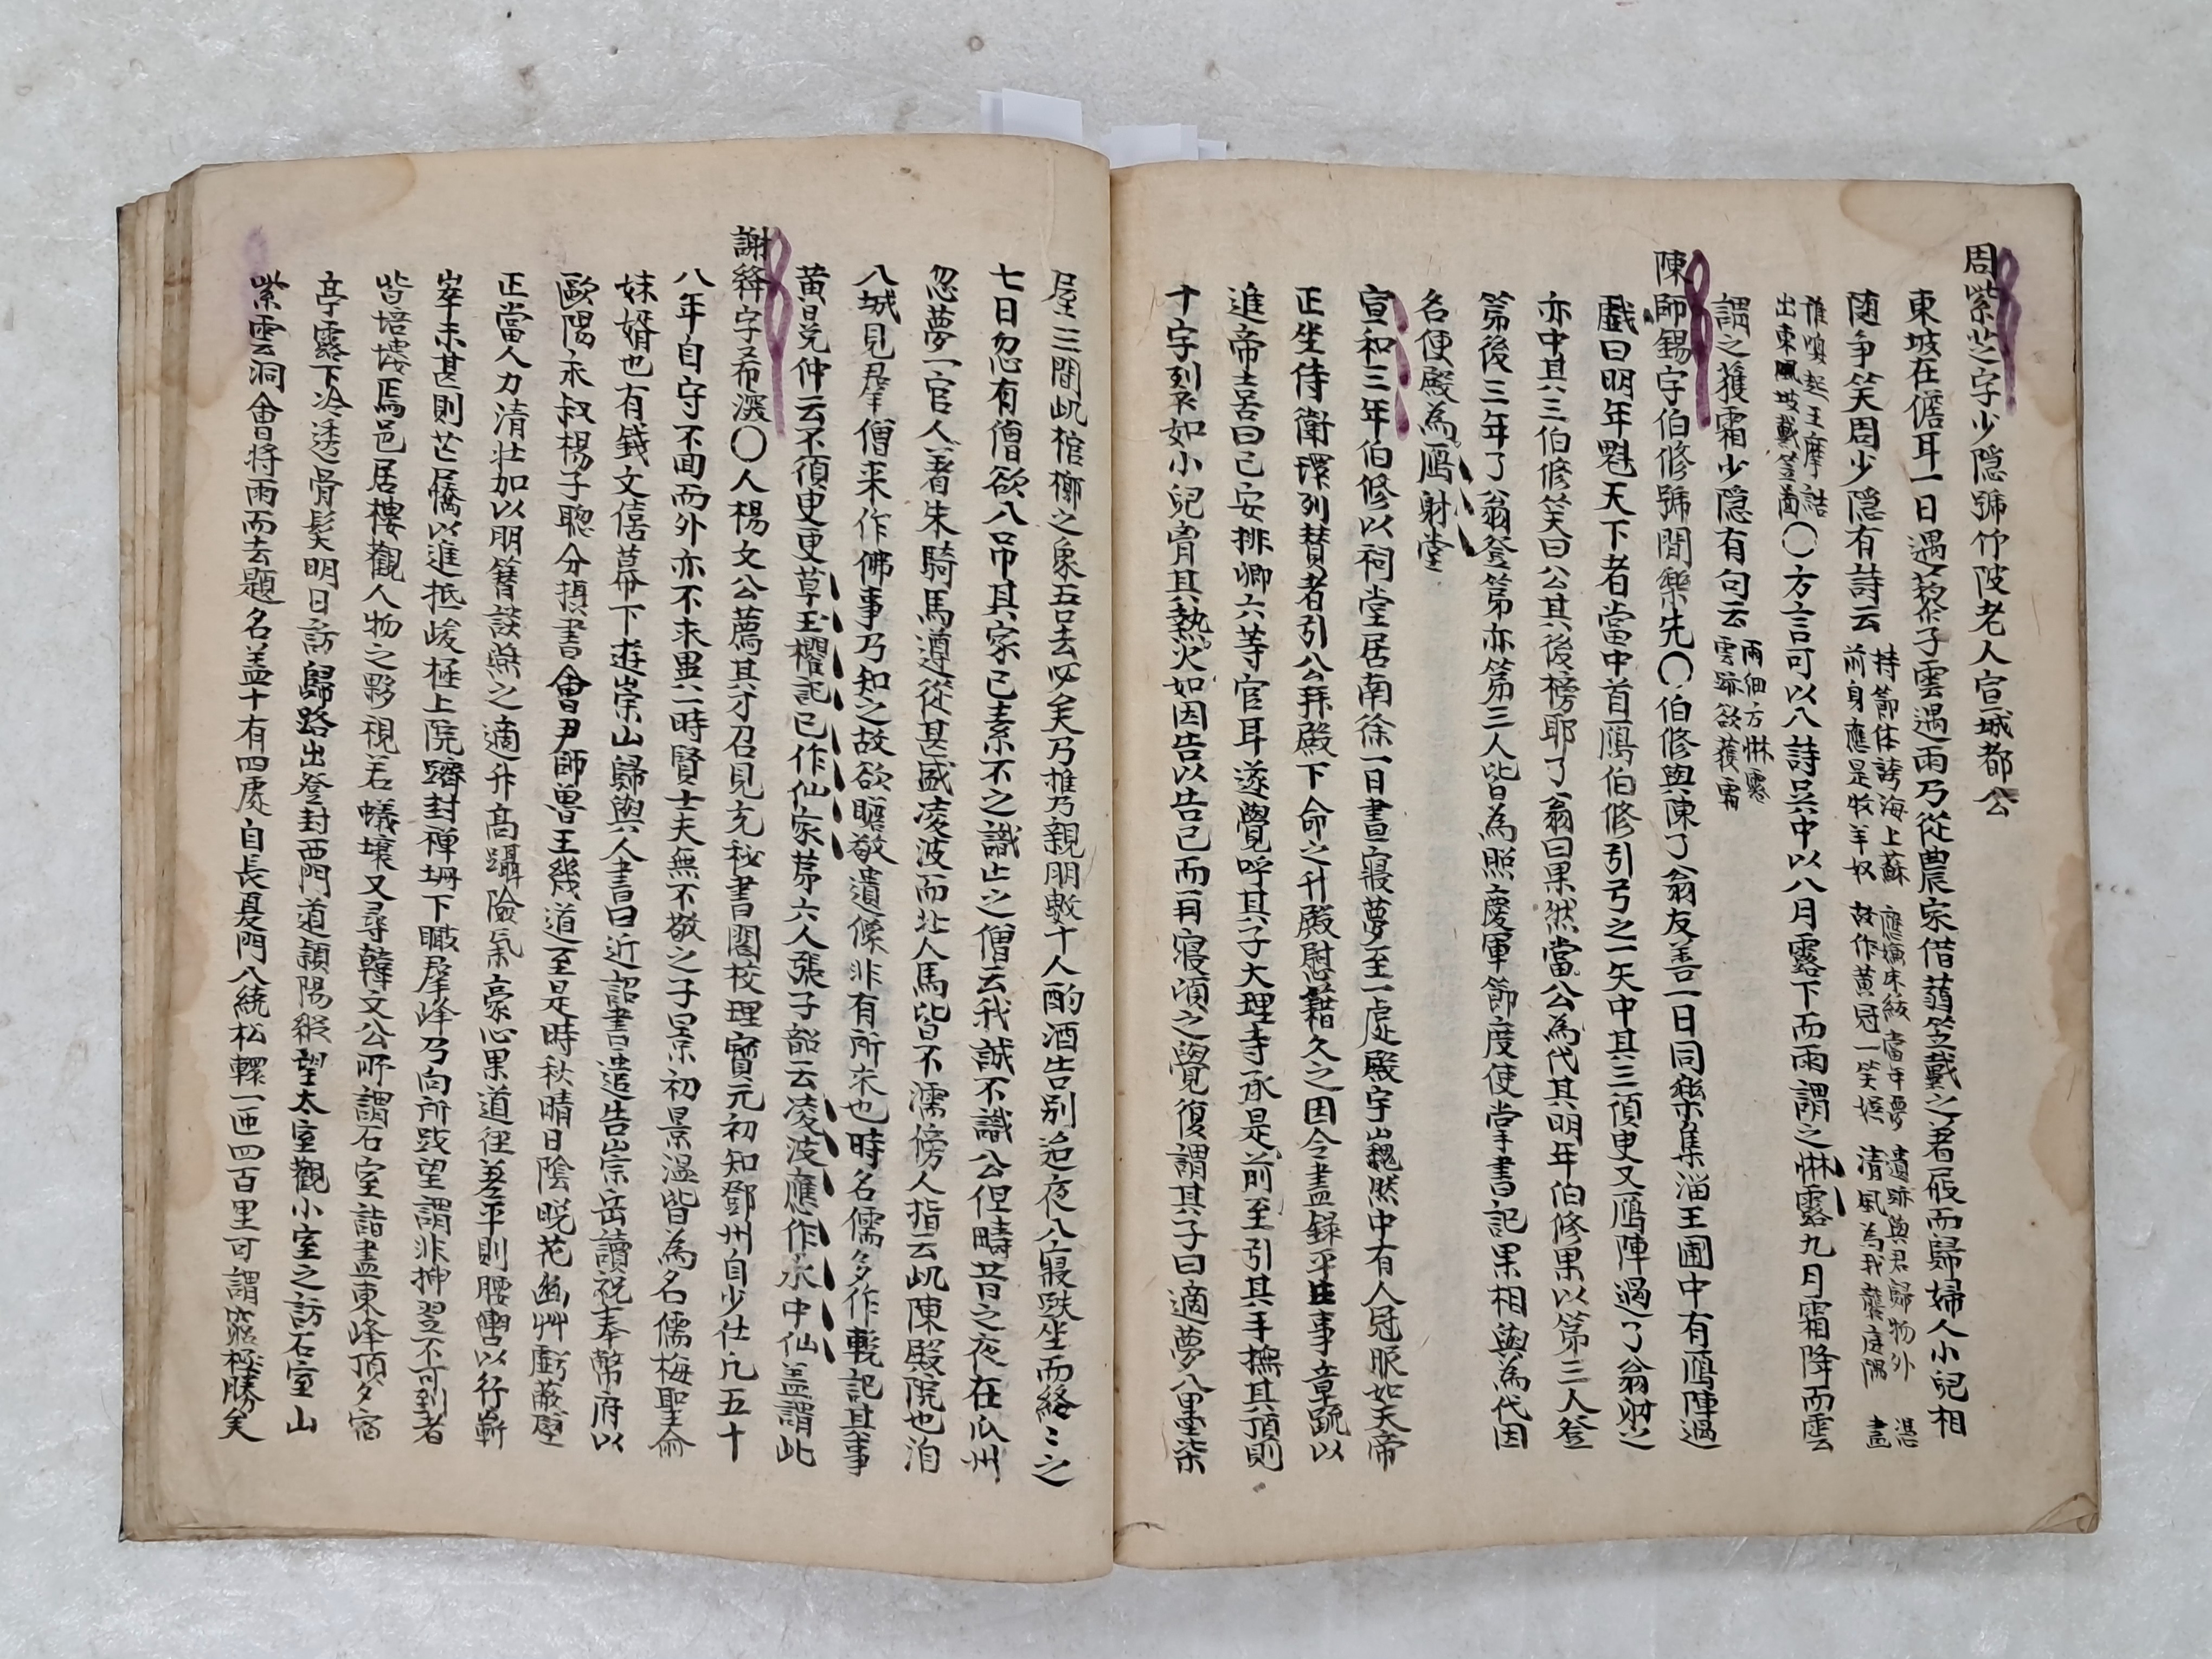 周紫芝字少隐號竹陂老人宣城都公
東坡在儋耳一日過黎子雲遇雨乃從農家借蒻笠戴之著屐而歸婦人小兒相
随争笑周少隐有詩云持節休誇海上蘇前身應是牧羊奴應嫌朱紱當年夢故作黃冠一笑娱遺跡與君歸物外清風為我襲庭隅湿畫
惟喚起王摩詰出東風坡戴笠圖〇方言可以入詩吳中以八月露下而雨謂之惏露九月霜降而雲
謂之護霜少隐有句云雨細方惏露雲踈欲護霜
陳師錫字伯修號閒樂先〇伯修與陳了翁友善一日同樂集淄王圃中有鴈陣過
戲曰明年魁天下者當中首鴈伯修引弓之一矢中其三須㬰又鴈陣過了翁射之
亦中其三伯修笑曰公其後榜耶了翁曰果然當公為代其明年伯修果以第三人登
第後三年了翁登第亦第三人皆為照慶軍節度使掌書記果相與為代因
名便殿為鴈射堂
宣和三年伯修以祠堂居南徐一日晝寢夢至一處殿宇巍然中有人冠服如天帝
正坐侍衛環列賛者引公拜殿下命之升殿慰藉久之因令盡錄平生事章䟽以
進帝喜曰已安排卿六等官耳遂覺呼其子大理寺丞是前至引其手撫其頂則
十字列衣如小兒膏其熱火如因告以告已而再寝頃之覺復謂其子曰適夢八黑柒
屋三間此棺槨之象吾去必矣乃推乃親朋數十人酌酒告别迨夜入寢趺坐而終之
七日忽有僧欲入吊其家已素不之識止之僧云我誠不識公但疇昔之夜在瓜州
忽夢一官人著朱騎馬遵從甚盛凌波而北人馬皆不濡傍人指云此陳殿院也洎
入城見羣僧来作佛事乃知之故欲瞻敬遺像非有所求也時名儒多作輓記其事
黃冕仲云不須更草玉樓記已作仙家第六人張子韶云凌波應作水中仙盖謂此
謝絳字希深〇人楊文公薦其才召見充秘書閣校理寳元初知鄧州自少仕凡五十
八年自守不囬而外亦不求異一時賢士夫無不敬之子景初景溫皆為名儒梅聖俞
妹婿也有錢文僖幕府下遊崇山歸與人書曰近詔書遣告崇岳讀祝奉幣府以
歐陽永叔楊子聰分攝書會尹師曽王幾道至是時秋晴日陰晚花幽艸虧蔽壁
正當人力清壮加以朋簪談燕之適升髙躡險氣豪心果道徑差平則腰轝以行嶄
崒未甚則芒屩以進抵峻極上院躋封禅壇下瞰羣峰乃向所跂望謂非挿翌不可到者
皆培塿焉邑居樓觀人物之夥視若蟻壤又尋韓文公所謂石室詣盡東峰頂夕宿
亭露下冷透骨髮明日訪歸路出登封西門道頴陽縱望太室觀小室之訪石室山
紫雲洞會將雨而去題名盖十有四處自長夏門入繞松轘一匝四百里可謂窮極勝矣